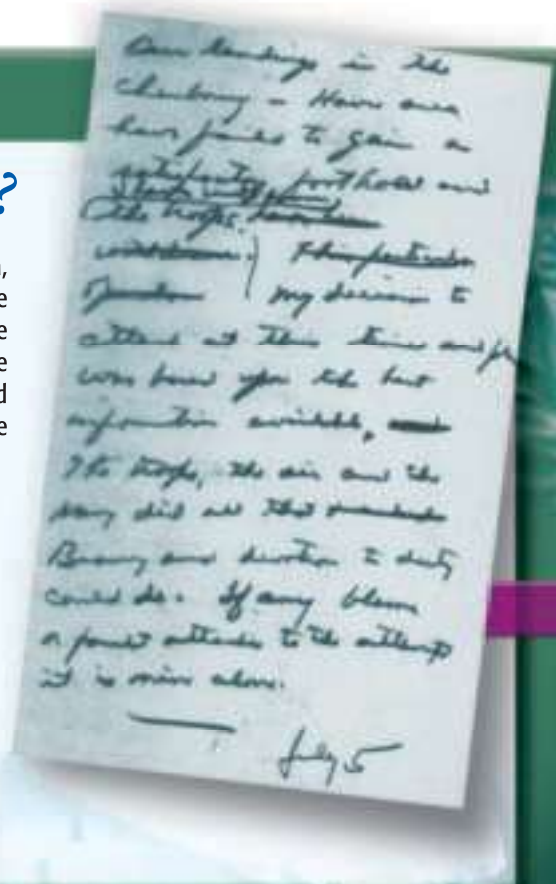 ?
Our landings in the
Cherbourg - Havre area
have failed to gain a
satisfactory foothold and
I have withdrawn
the troops. have been
withdrawn. This particular
operation my decision to
attack at this time and
was based upon the best
information available, and
The troops, the air and the
Navy did all that
Bravery and devotion to duty
could do. If any blame
or fault attaches to the attempt
it is mine alone.
July 5